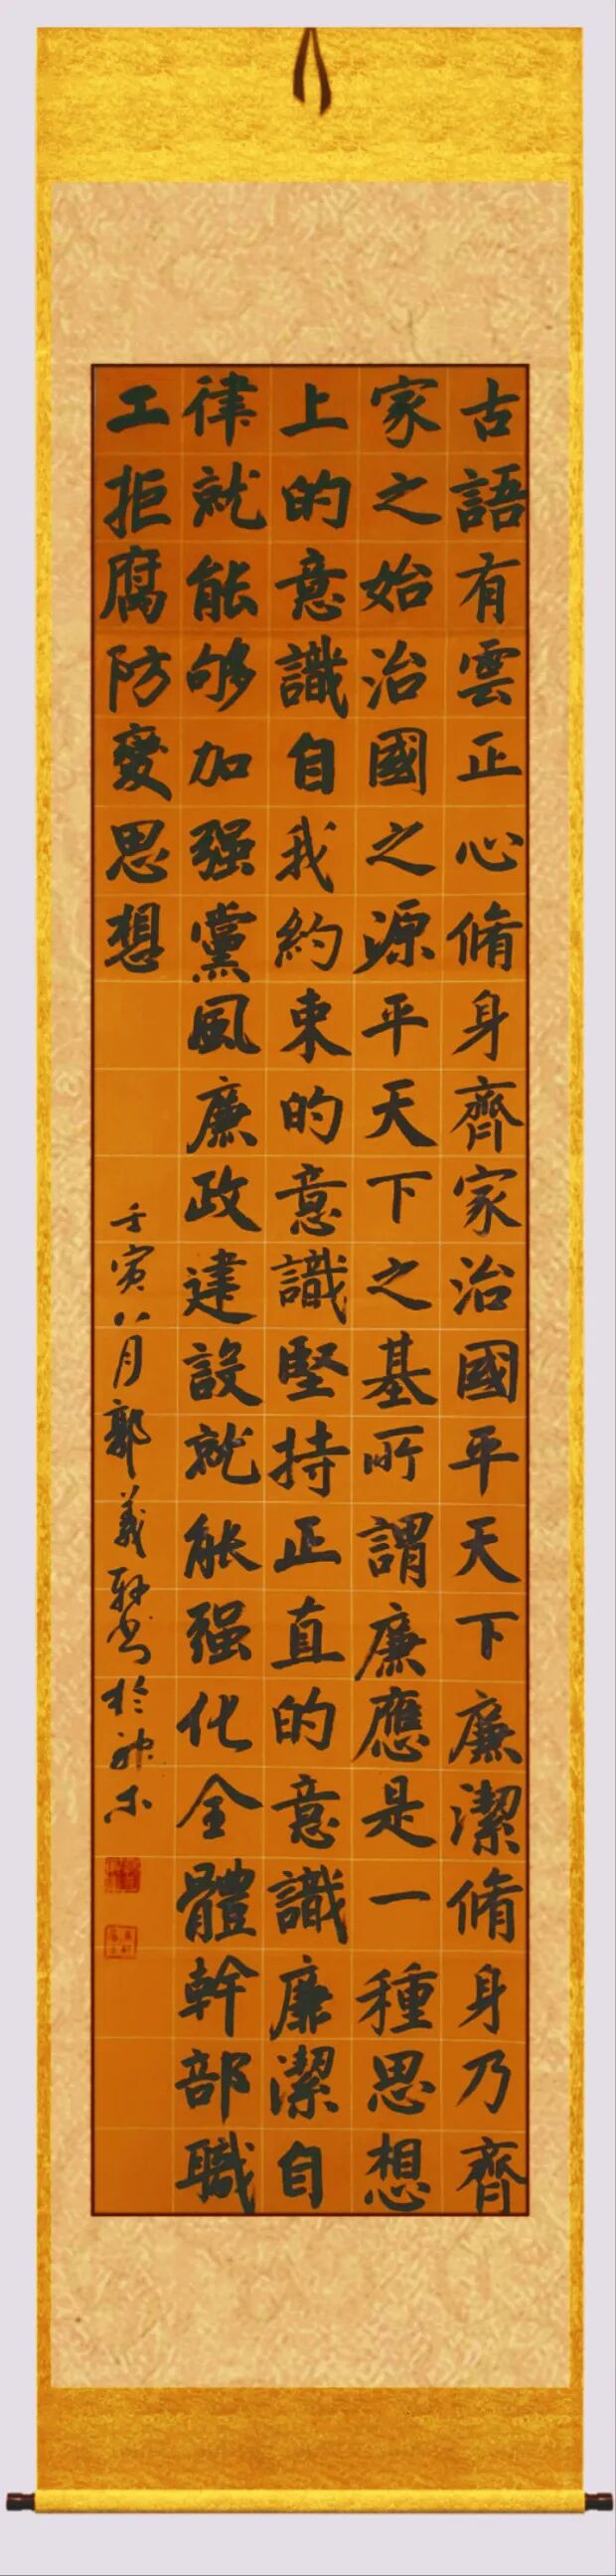 古語有雲正心脩身齊家治國平天下廉潔脩身乃齊
家之始治國之源平天下之基所謂廉應是一種思想
上的意識自我約束的意識堅持正直的意識廉潔自
律就能够加强黨風廉政建設就能强化全體幹部職
工拒腐防變思想
壬寅八月郭義軒書於